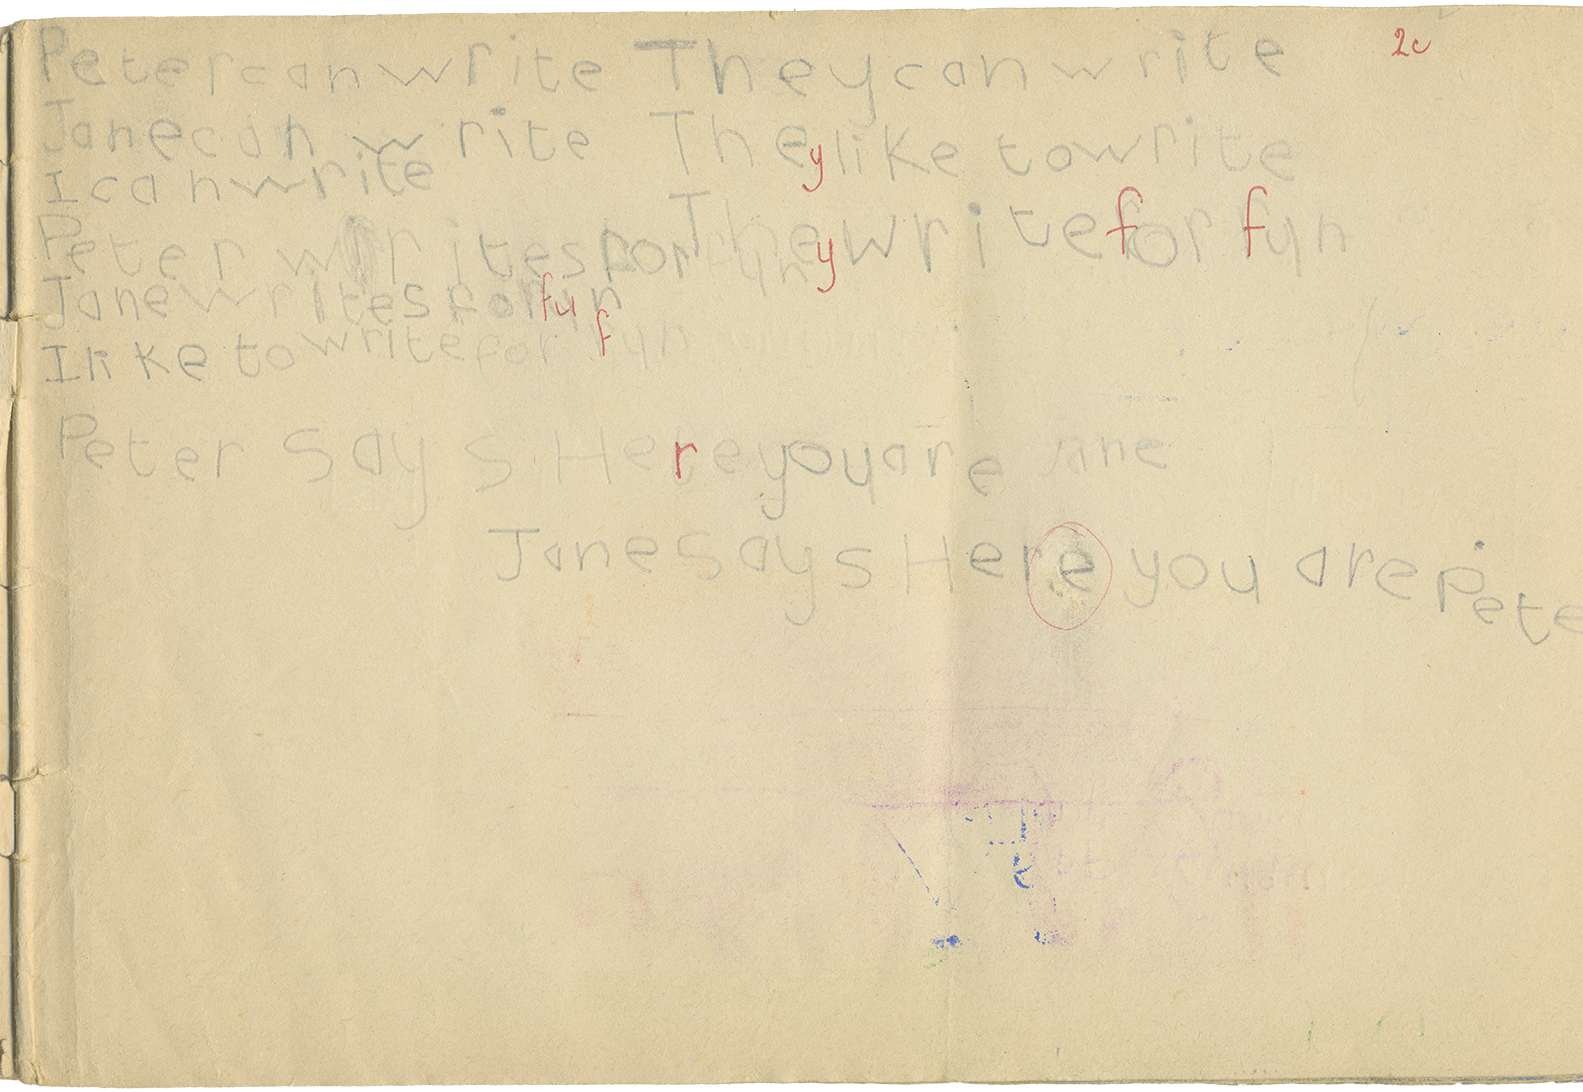 Peter can write They can write 2c
Jane can write They like to write
I can write
Peter writes for fyn They write for fyn
Jane writes for fun
I like to write for fyn
Peter Says Here you are
Jane Says Here you are Pete